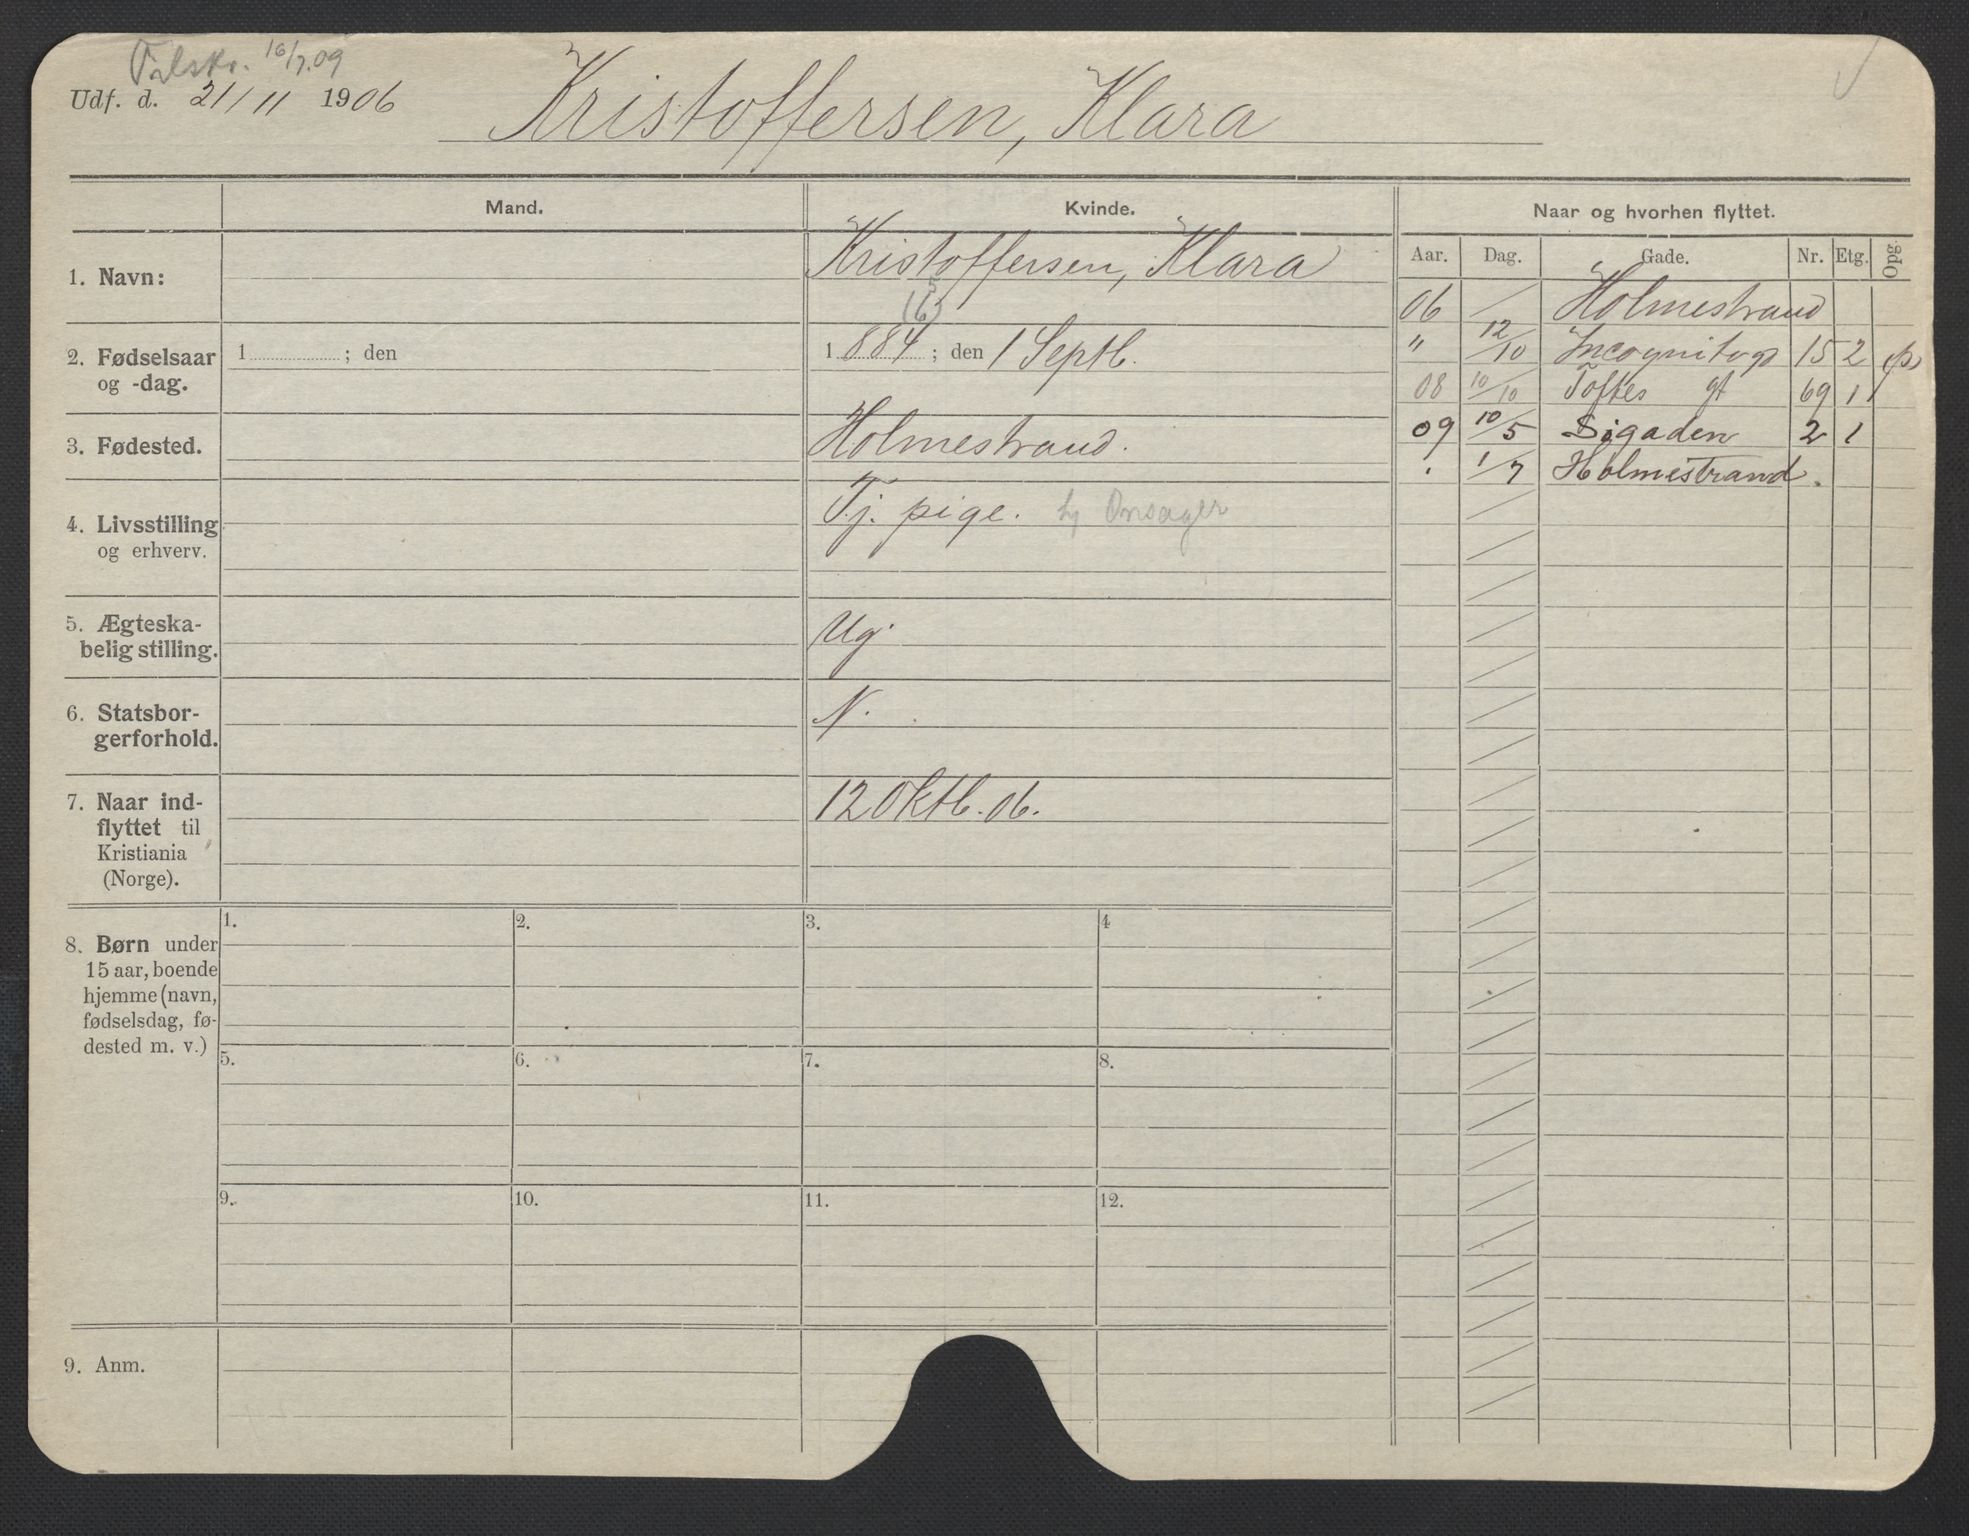 Tilskr. 16/7.09
Udf. d. 21/11 1906
Kristoffersen, Klara
Mand.
Kvinde.
Naar og hvorhen flyttet.
Aar. Dag. Gade. Nr. Etg. Opg.
1. Navn:
Kristoffersen, Klara
2. Fødselsaar
og -dag.
1 ; den
(6)
1884 ; den 1 Septb.
3. Fødested.
Holmestrand.
4. Livsstilling
og erhverv.
Tj. pige. hj Onsager
5. Ægteska-
belig stilling.
Ug.
6. Statsbor-
gerforhold.
N.
7. Naar ind-
flyttet til
Kristiania
(Norge).
12 Oktb. 06.
06 Holmestrand
" 12/10 Incognitogd 15 2 (p)
08 10/10 Toftes gt 69 1
09 10/5 Sigaden 2 1
. 1/7 Holmestrand.
8. Børn under
15 aar, boende
hjemme (navn,
fødselsdag, fø-
dested m. v.)
1. 2. 3. 4
5. 6. 7. 8.
9. 10. 11. 12.
9. Anm.